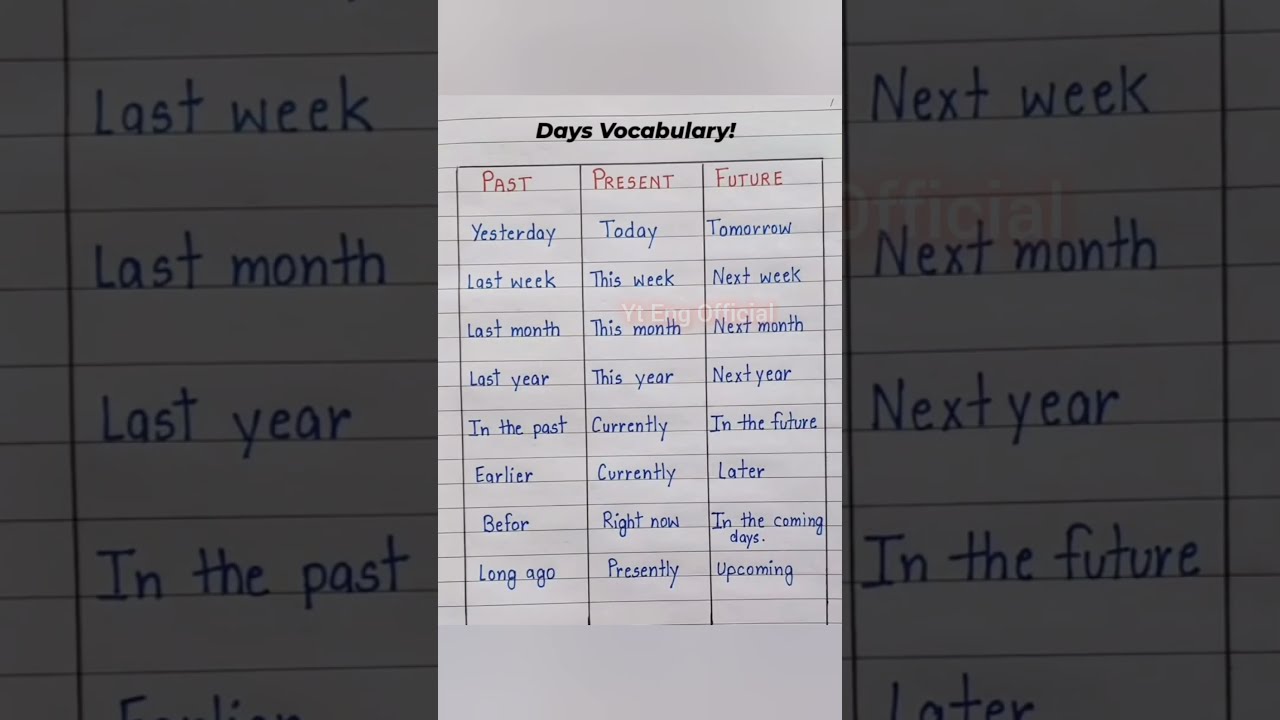 Days Vocabulary!
PAST PRESENT FUTURE
Yesterday Today Tomorrow
Last week This week Next week
Yt Eng Official
Last month This month Next month
Last year This year Next year
In the past Currently In the future
Earlier Currently Later
Befor Right now In the coming
days.
Long ago Presently Upcoming
Last week
Last month
Last year
In the past
Earlier
Next week
Official
Next month
Next year
In the future
Later